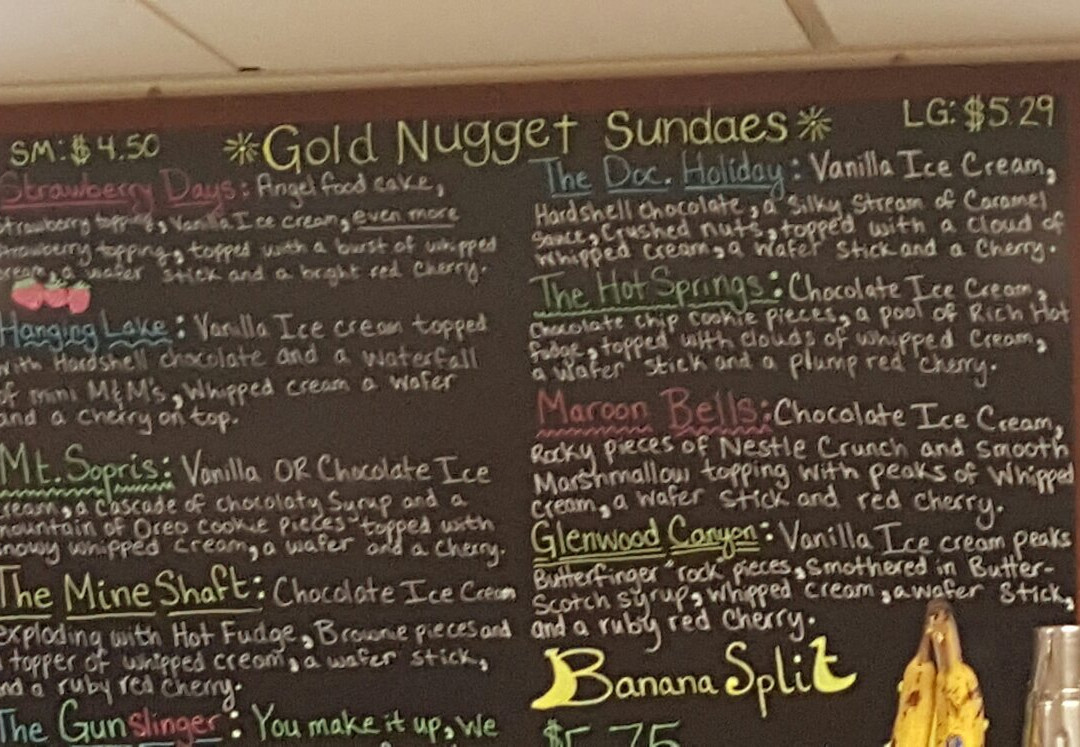 SM: $4.50 ☀Gold Nugget Sundaes☀ LG: $5.29
Strawberry Days: Angel food cake,
strawberry topping, Vanilla Ice cream, even more
strawberry topping, topped with a burst of whipped
cream, a wafer stick and a bright red cherry.
Hanging Lake: Vanilla Ice cream topped
with Hardshell chocolate and a waterfall
of mini M&M's, Whipped cream a wafer
and a cherry on top.
Mt. Sopris: Vanilla OR Chocolate Ice
cream, a cascade of chocolaty Surup and a
mountain of Oreo cookie pieces topped with
snowy whipped cream, a wafer and a cherry.
The Mine Shaft: Chocolate Ice Cream
exploding with Hot Fudge, Brownie pieces and
a topper of whipped cream, a wafer stick,
and a ruby red cherry.
The Gunslinger: You make it up, We
The Doc. Holiday: Vanilla Ice Cream,
Hardshell chocolate, a Silky Stream of Caramel
Sauce, Crushed nuts, topped with a Cloud of
whipped cream, a wafer Stick and a Cherry.
The Hot Springs: Chocolate Ice Cream,
Chocolate chip cookie pieces, a pool of Rich Hot
fudge, topped with clouds of whipped Cream,
a wafer Stick and a plump red Cherry.
Maroon Bells: Chocolate Ice Cream,
Rocky pieces of Nestle Crunch and Smooth
Marshmallow topping with peaks of Whipped
cream, a wafer stick and red cherry.
Glenwood Canyon: Vanilla Ice cream peaks
Butterfinger "rock" pieces, Smothered in Butter-
Scotch syrup, whipped cream, a wafer Stick,
and a ruby red Cherry.
Banana Split
$5.75